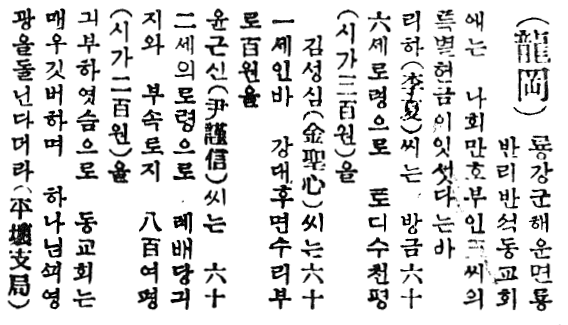 (龍岡)
룡강군해운면룡
반리반석동교회
애는 나회만호부인三씨의
특별헌금이잇섯다는바
리하(李夏)씨는 방금六十
六세로령으로 토디수천평
(시가三百원)을
김성심(金聖心)씨는六十
一세인바 강대후면수리부
로百원을
윤근신(尹謹信)씨는 六十
二세의로령으로 례배당긔
지와 부속로지 八百여평
(시가二百원)을
긔부하엿슴으로 동교회는
매우깃버하며 하나님ᄭᅴ영
광을돌닌다더라(平壤支局)